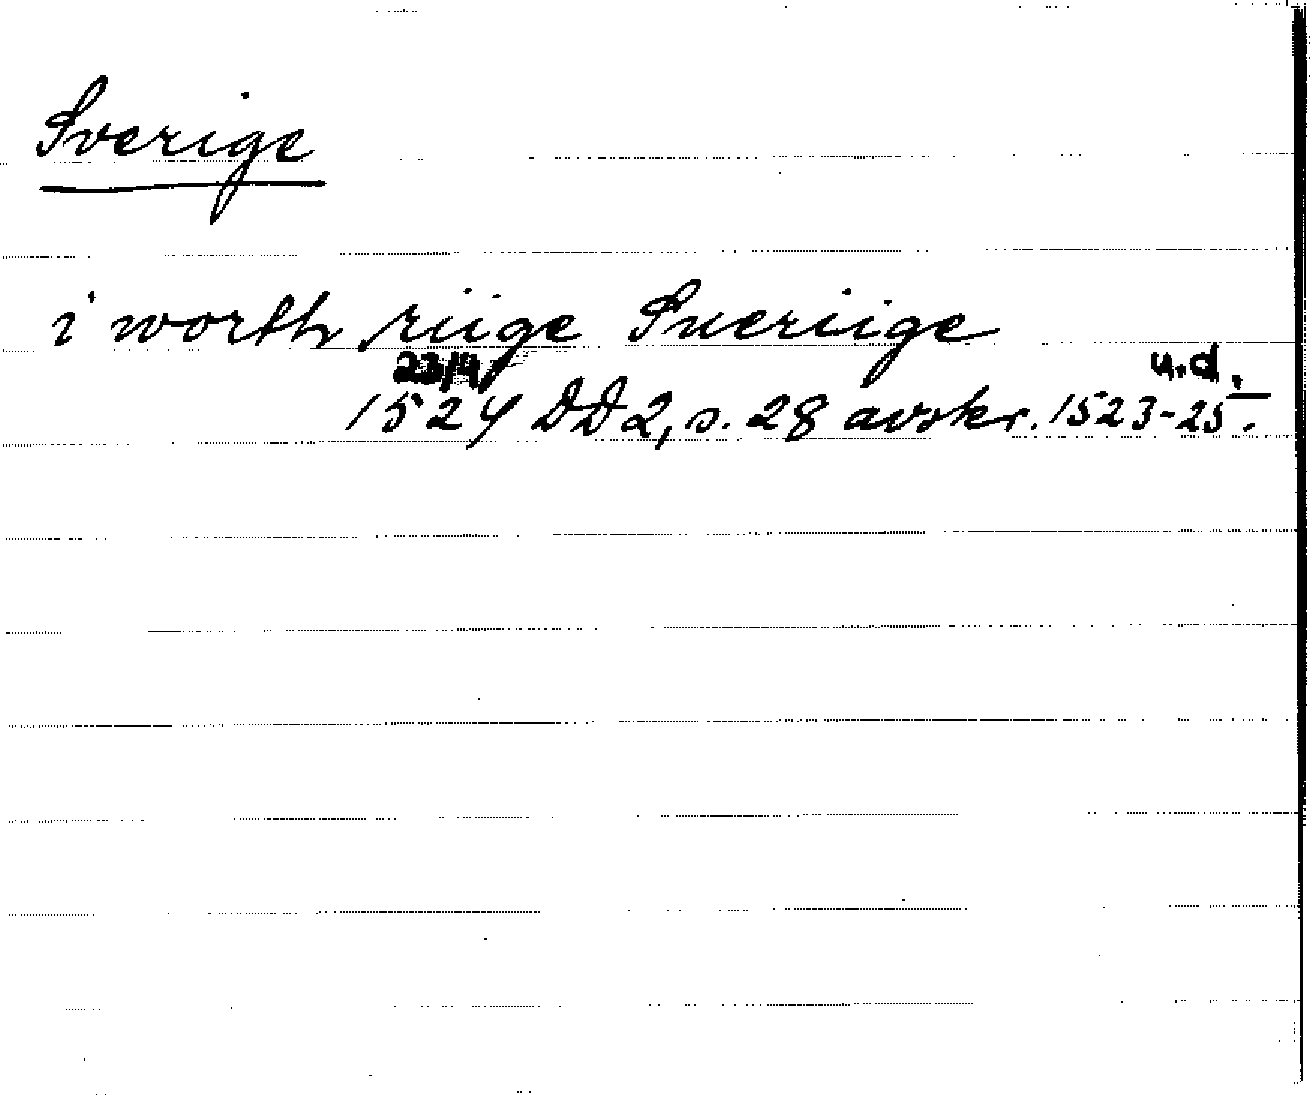 Sverige
i worth riige Sueriige
23/4 u.d.
1524 DD2, s. 28 avskr. 1523-25.